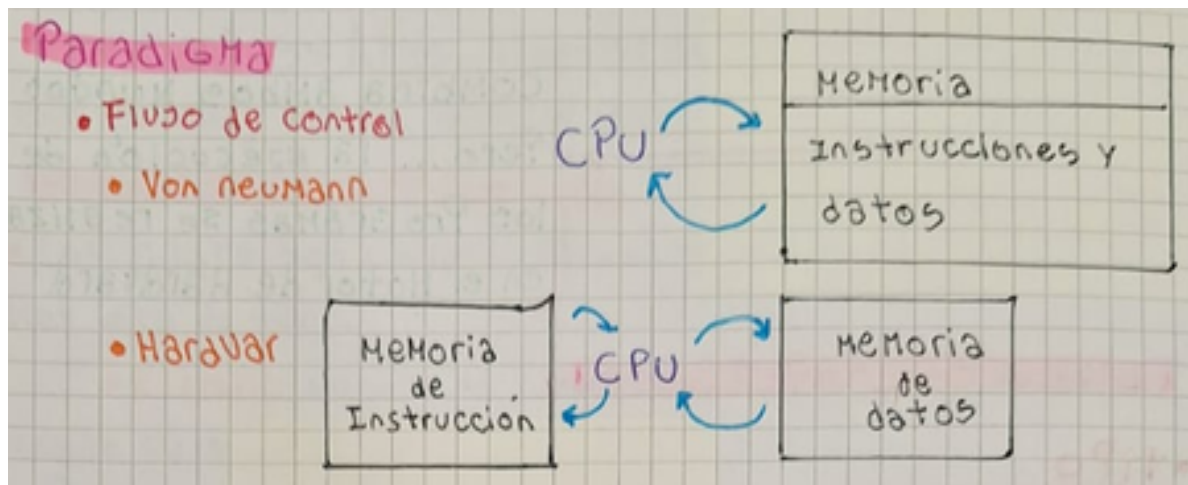 Paradigma
• Flujo de control
• Von neumann
CPU
Memoria
Instrucciones y
datos
• Harduar
Memoria
de
Instrucción
CPU
Memoria
de
datos